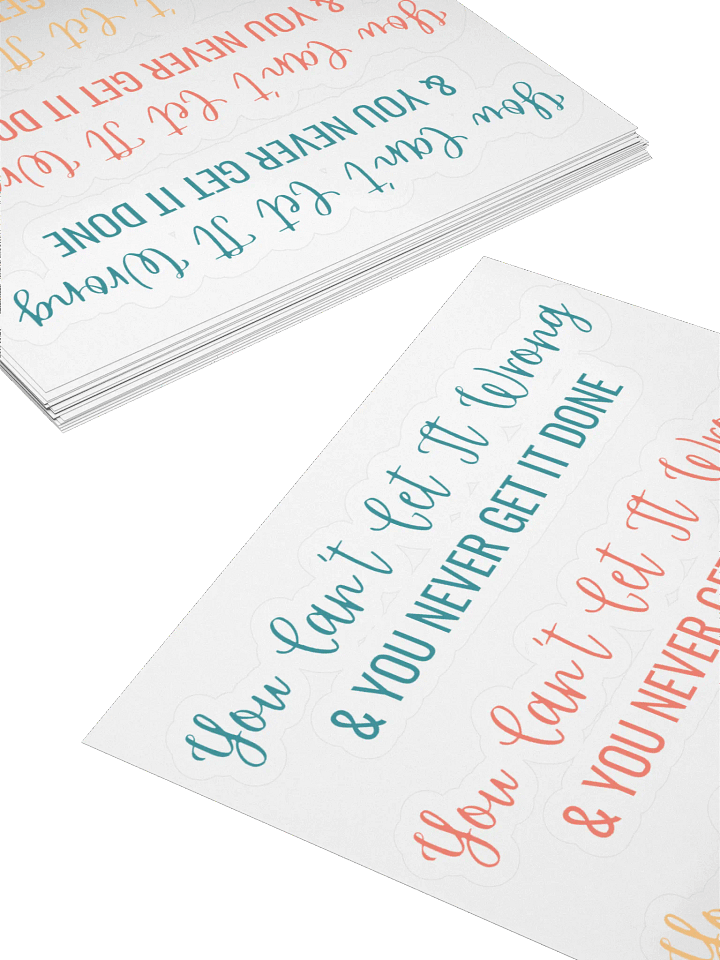 Get It
You Can't Get It Wro
YOU NEVER GET IT DO
You Can't Get It Wrong
& YOU NEVER GET IT DONE
You Can't Get It Wrong
& YOU NEVER GET IT DONE
You Can't Get It Wro
& YOU NEVER GET